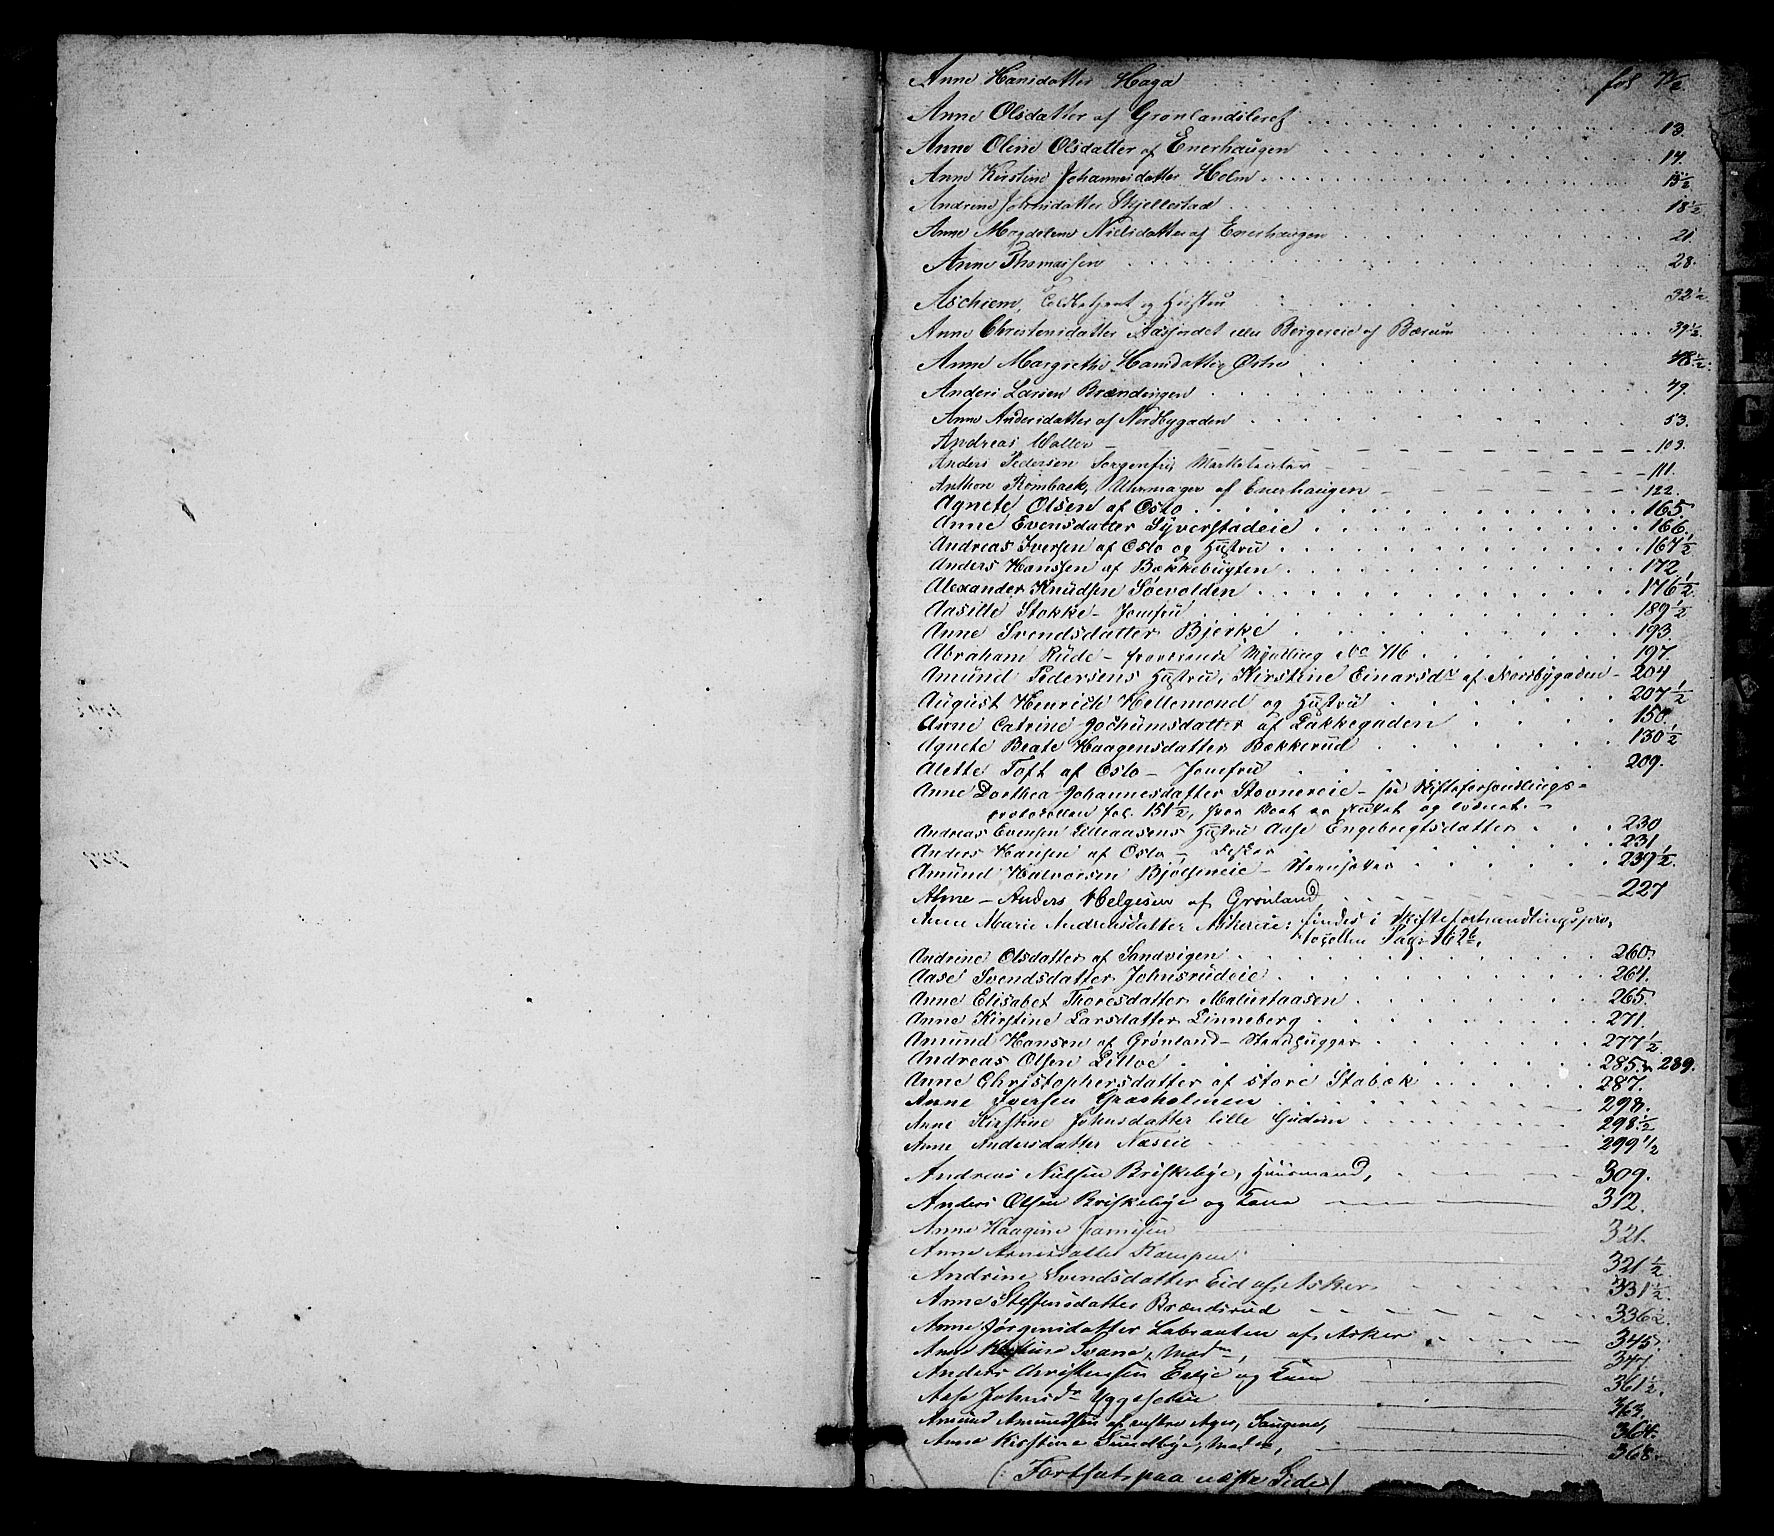 Anne Hansdatter Haga fol 7½
Anne Olsdatter af Grønlandsleret 13.
Anne Oline Olsdatter af Enerhaugen 14.
Anne Kirstine Johannesdatter Holm 15½
Andrine Johnsdatter Skjellestad 18½
Anne Magdelene Nielsdatter af Enerhaugen 21.
Anne Thomassen 28.
Aschiem, Toldbetjent og Hustru 32½
Anne Christensdatter eller Borgereie af Bærum 39½
Anne Margrethe Hansdatter Østre 48½
Anders Larsen Brændingen 49.
Anne Andersdatter af Nordbygaden 53.
Andreas Waller 103.
Anders Pedersen Sorgenfri, Marketenter 111.
Anthon Rombaek, Uhrmager af Enerhaugen 122.
Agnete Olsen af Oslo 165.
Anne Evensdatter Syverstadeie 166.
Andreas Iversen af Oslo og Hustru 167½
Anders Hanssen af Bækkebugten 172
Alexander Knudsen Soevolden 176½
Aasille Stokke - Jomfru 189½
Anne Svendsdatter Bjerke 193.
Abraham Rude - No 716 197.
Amund Pedersens Hustru, Kirstine Einarsdr af Nordbygaden - 204
August Henrich Hellemond og Hustru 207½
Anne Catrine Jochumsdatter af Lakkegaden 150.
Agnete Beate Haagensdatter Bakkerud 130½
Alette Toft af Oslo - Jomfru 209.
Anne Dorthea Johannesdatter Stovnereie - se Skifteforhandlings-
protocollen fol. 151½, hvor Boet er sluttet og
Andreas Evensen Lilleaasens Hustru Aase Engebregtsdatter 230
Anders Hansen af Oslo - Fisker 231
Amund Halvorsen Bjølseneie - Steenhøker 237½
Alme - Anders Helgesen af Grønland 227
Anne Marie Andreasdatter Askereie: findes i Skifteforhandlingspro-
tocollen Pag: 162b.
Andrine Olsdatter af Sandvigen 260.
Aase Svendsdatter Johnsrudeie 264.
Anne Elisabet Thoresdatter Malerhaasen 265.
Anne Kirstine Larsdatter Linneberg 271.
Amund Hansen af Grønland - Steenhugger 277½
Andreas Olsen Lilloe 285. 289.
Anne Christophersdatter af store Stabæk 287.
Anne Iversen Græsholmen 298.
Anne Kirstine Johnsdatter lille Gudem 298½
Anne Andersdatter Næseie 299½
Andreas Nielsen Briskebye, Huusmand, 309.
Anders Olsen Briskebye og Kone 312.
Anne Haagine Jamissen 321.
Anne Arnesdatter Kampen 321½
Andrine Svendsdatter Eid af Asker 331½
Anne Steffensdatter Brændsrud 336½
Anne Jørgensdatter Labraaten af Asker 345.
Anne Kirstine Svane, Madm, 347.
Anders Christensen Eelje og Kone 361½
Aase Johnsdr Uggeseteie 363.
Amund Amundsen af vestre Ager, Haugene, 364.
Anne Kirstine Sundbye, Madm, 368.
(: Fortsat paa næste Side :)